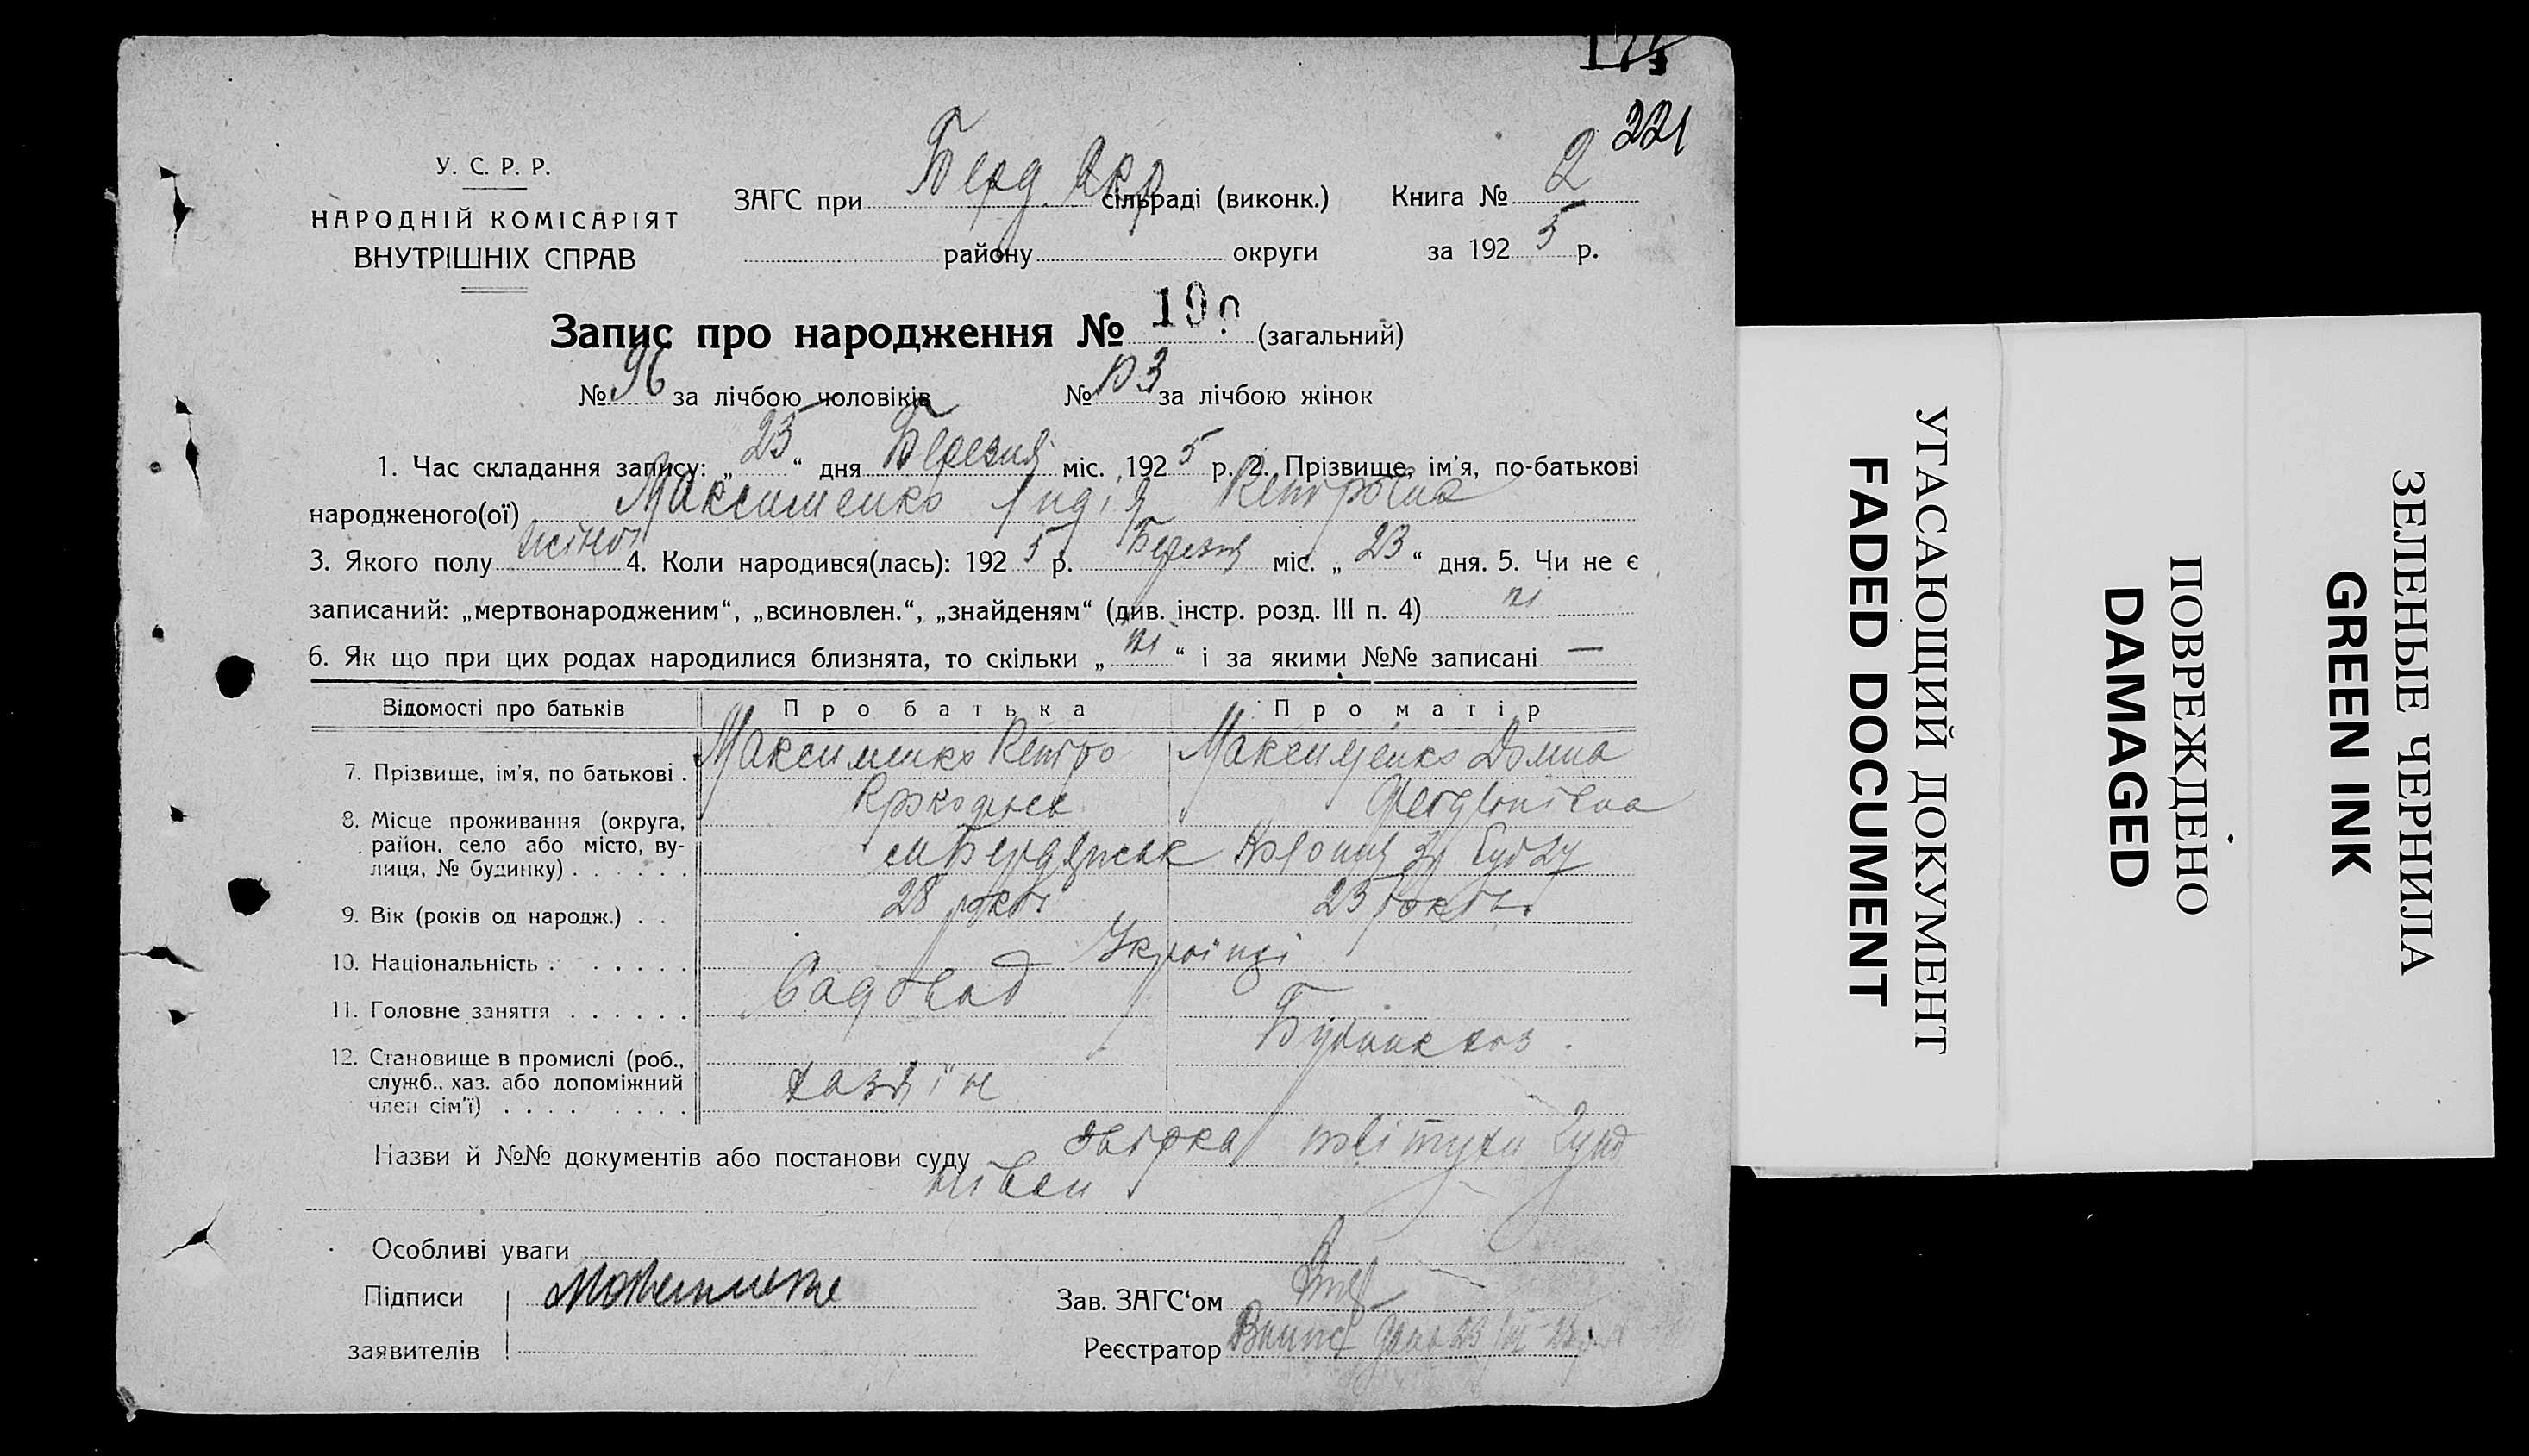 221
У. С. Р. Р.
НАРОДНІЙ КОМІСАРІЯТ
ВНУТРІШНІХ СПРАВ
ЗАГС при Берд. Окр сільраді (виконк.) Книга № 2
району округи за 1925 р.
Запис про народження № (загальний)
№ 96 за лічбою чоловіків № за лічбою жінок
1. Час складання запису: „25“ дня Березня міс. 1925 р. 2. Прізвище, ім'я, по-батькові
народженого(ої) Максименко Лідія Петровна
3. Якого полу жіноч 4. Коли народився(лась): 1925 р. Березня міс. „23“ дня. 5. Чи не є
записаний: „мертвонародженим“, „всиновлен.“, „знайденям“ (див. інстр. розд. III п. 4) ні
6. Як що при цих родах народилися близнята, то скільки „ні“ і за якими №№ записані —
Відомості про батьків Про батька Про матір
7. Прізвище, ім'я, по батькові . Максименко Петро Максименко Домна
8. Місце проживання (округа,
район, село або місто, ву-
лиця, № будинку) . . . . . . м Бердянськ Колонія буд 27
9. Вік (років од народж.) . . 28 років 25 років
10. Національність . . . . . . Українці
11. Головне заняття . . . . . . Садовод
12. Становище в промислі (роб.,
служб., хаз. або допоміжний
член сім'ї) . . . . . . . . хазяїн
Назви й №№ документів або постанови суду
Особливі уваги
Підписи
заявителів
Зав. ЗАГС‘ом
Реєстратор
УГАСАЮЩИЙ ДОКУМЕНТ
FADED DOCUMENT
ПОВРЕЖДЕНО
DAMAGED
ЗЕЛЕНЫЕ ЧЕРНИЛА
GREEN INK